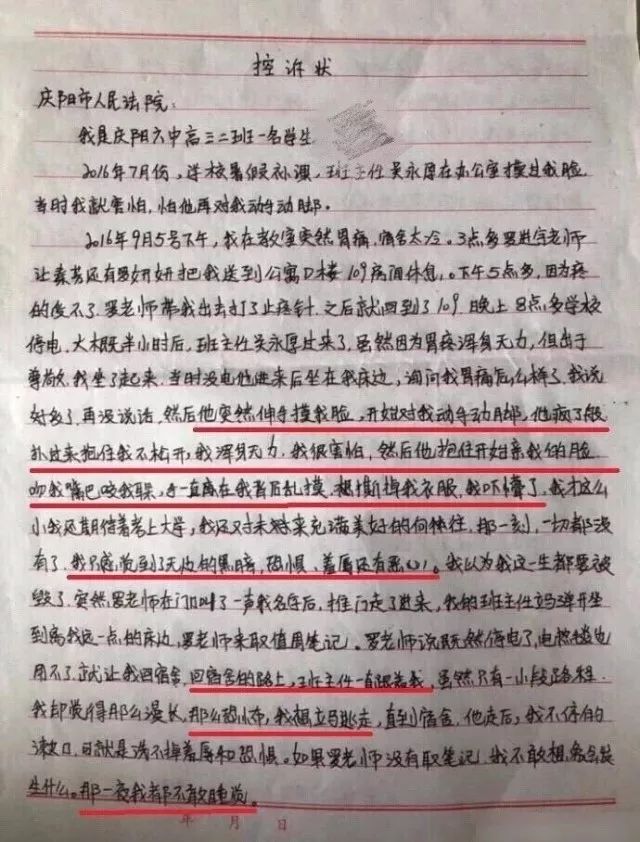 控诉状
庆阳市人民法院:
我是庆阳六中高三二班一名学生
2016年7月份,学校暑假补课,班主任吴永厚在办公室摸过我脸
当时我就害怕,怕他再对我动手动脚。
2016年9月5号下午,我在教室突然胃痛,宿舍太冷。3点多罗进宇老师
让秦芳还有罗妞妞把我送到公寓D楼109房间休息。下午5点多,因为疼
的受不了.罗老师带我出去打了止疼针.之后就回到了109.晚上8点多学校
停电.大概半小时后,班主任吴永厚过来了,虽然因为胃疼浑身无力,但出于
尊敬.我坐了起来.当时没电他进来后坐在我床边,询问我胃痛怎么样了.我说
好多了.再没说话.然后他突然伸手摸我脸,开始对我动手动脚,他疯了般
扑过来抱住我不松开,我浑身无力.我很害怕,然后他抱住开始亲我的脸.
吻我嘴巴咬我耳朵,手一直在我背后乱摸.想撕掉我衣服,我吓懵了.我才这么
小我还期待着考上大学,我还对未来充满美好的向往.那一刻,一切都没
有了.我只感觉到了无边的黑暗,恐惧、羞辱还有恶心!我以为我这一生都要被
毁了.突然罗老师在门口叫了一声我名字后,推门走了进来,我的班主任立马弹开坐
到离我远一点的床边,罗老师来取值周笔记。罗老师说既然停电了,电热毯也
用不了.就让我回宿舍.回宿舍的路上,班主任一直跟着我,虽然只有一小段路程.
我却觉得那么漫长.那么恐怖,我想立马逃走,直到宿舍.他走后,我不停的
漱口,可就是洗不掉羞辱和恐惧。如果罗老师没有取笔记.我不敢想象会发
生什么。那一夜我都不敢睡觉。
年 月 日